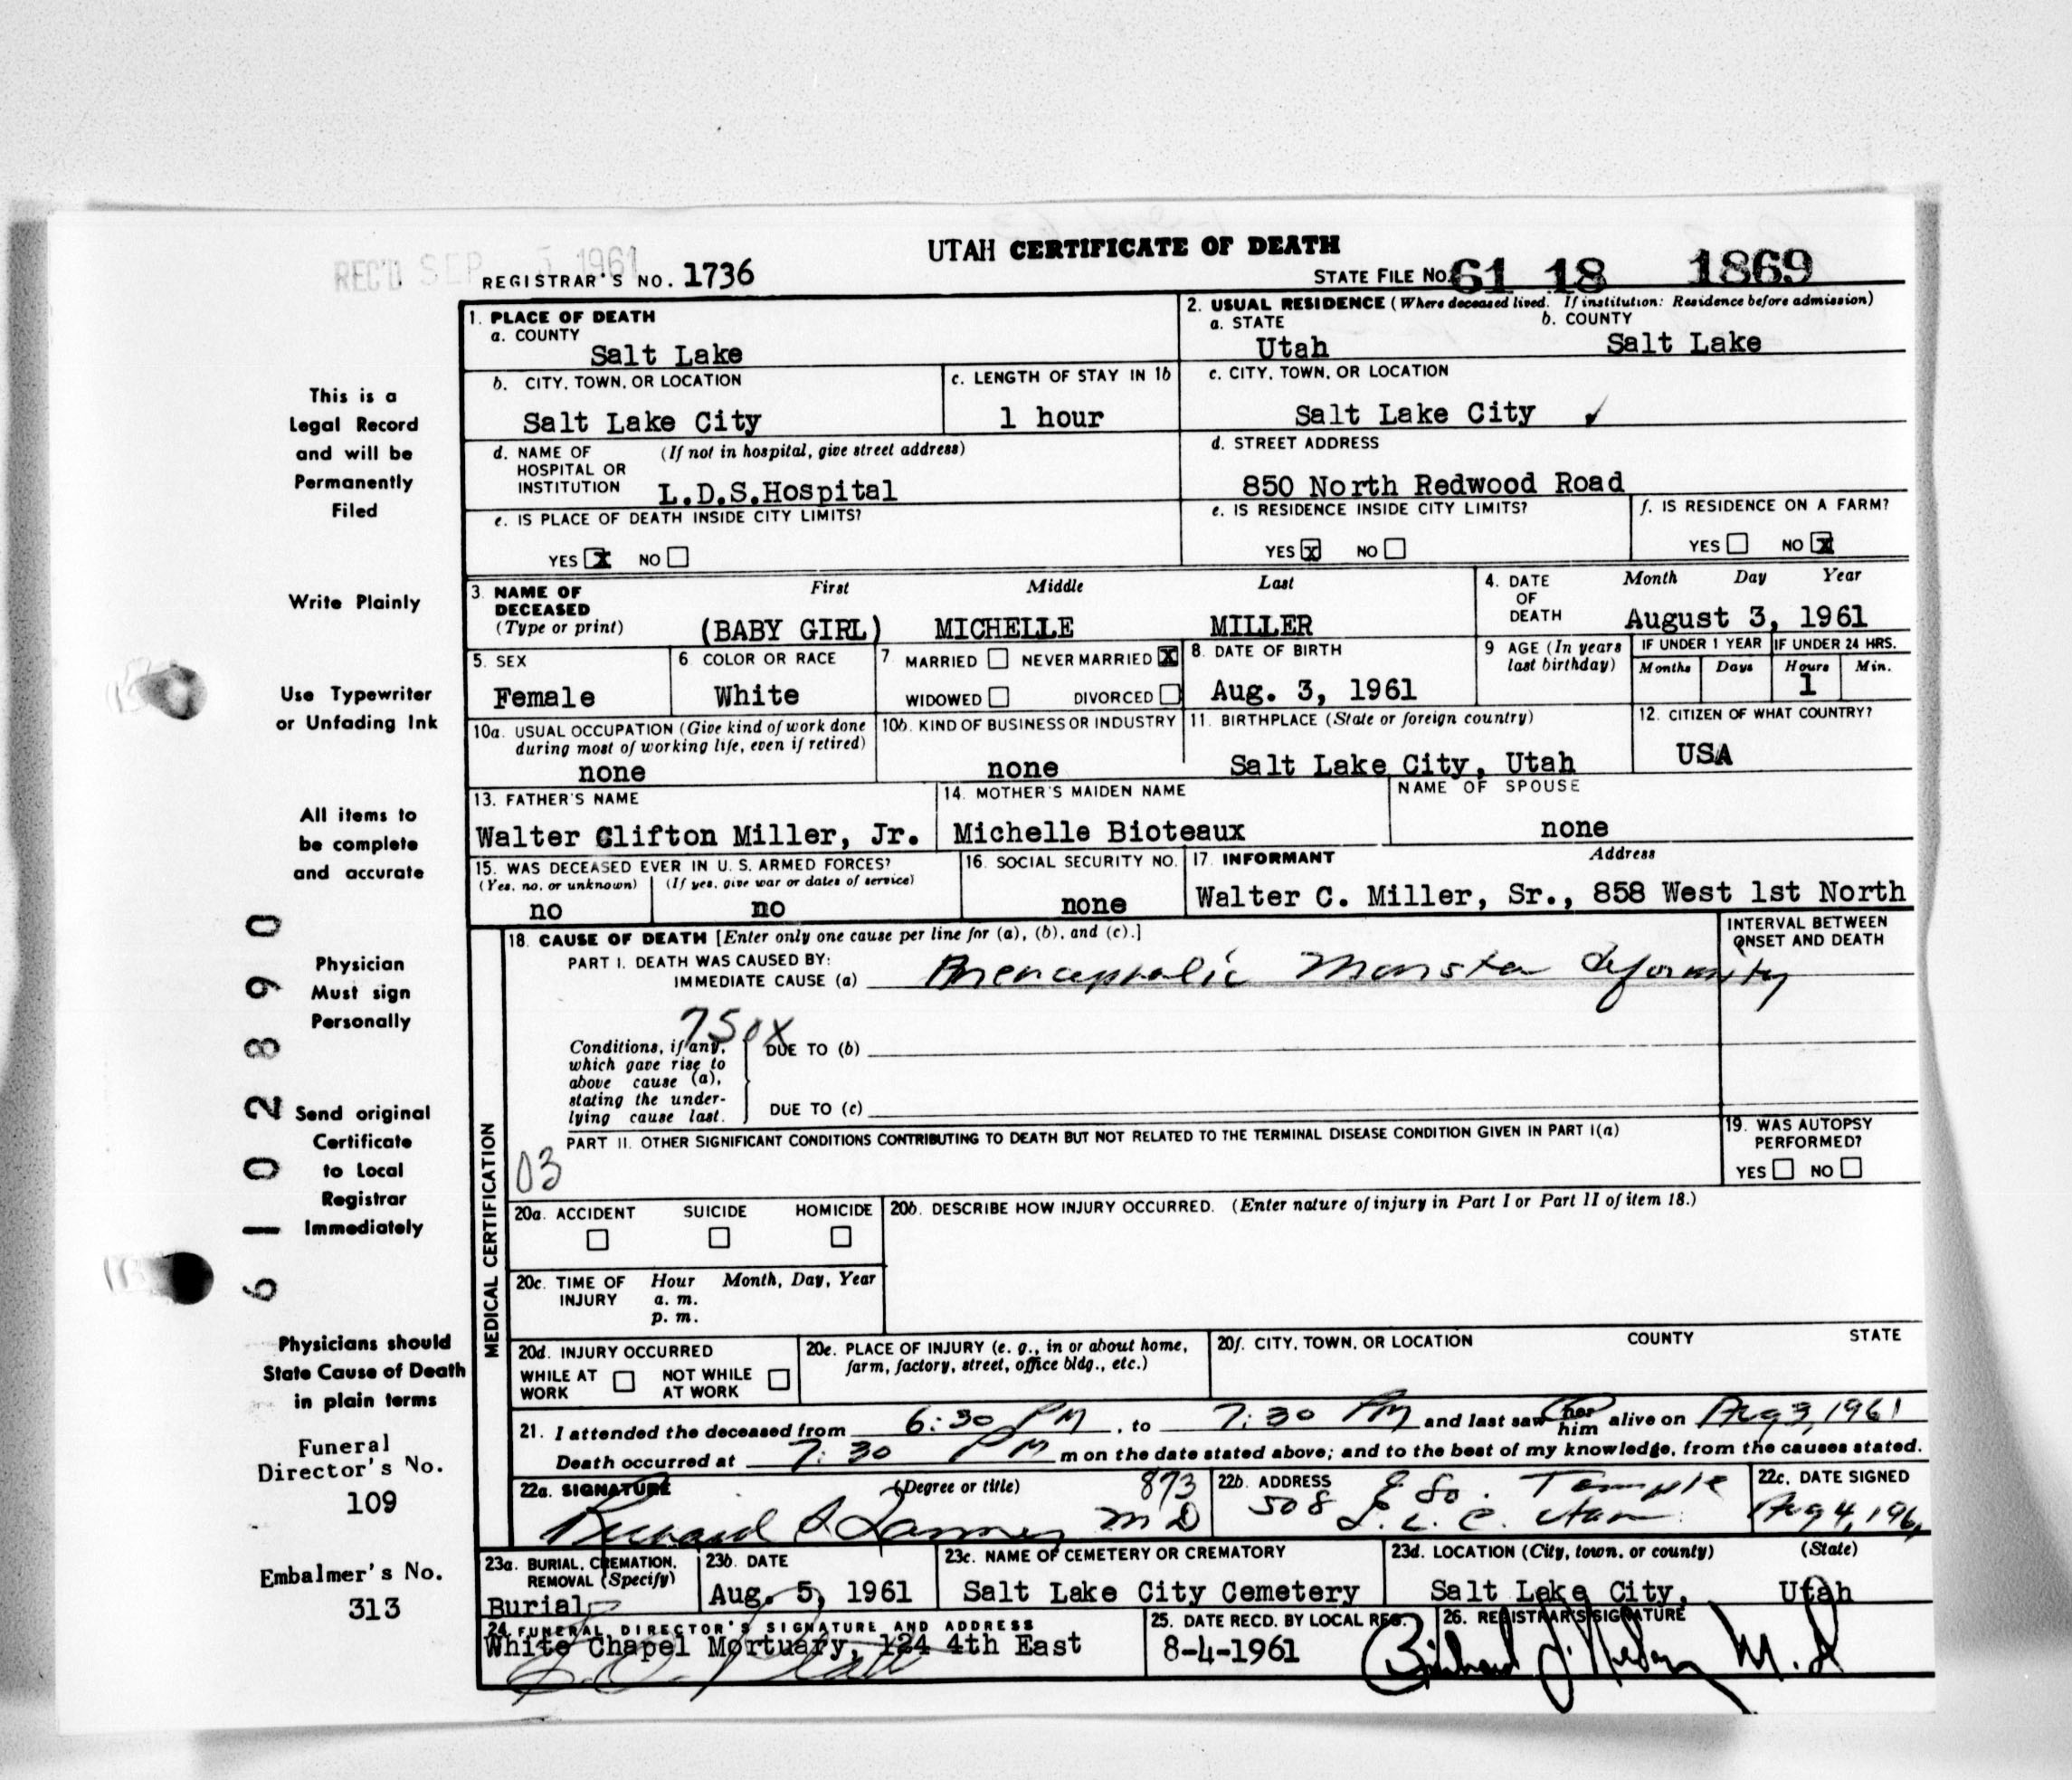 UTAH CERTIFICATE OF DEATH
REC'D SEP 1961
REGISTRAR'S NO. 1736
STATE FILE NO. 61 18 1869
1. PLACE OF DEATH
a. COUNTY
Salt Lake
2. USUAL RESIDENCE (Where deceased lived. If institution: Residence before admission)
a. STATE b. COUNTY
Utah Salt Lake
b. CITY, TOWN, OR LOCATION
Salt Lake City
c. LENGTH OF STAY IN 1b
1 hour
c. CITY, TOWN, OR LOCATION
Salt Lake City ✓
d. NAME OF (If not in hospital, give street address)
HOSPITAL OR
INSTITUTION L.D.S.Hospital
d. STREET ADDRESS
850 North Redwood Road
e. IS PLACE OF DEATH INSIDE CITY LIMITS?
YES [x] NO [ ]
e. IS RESIDENCE INSIDE CITY LIMITS?
YES [x] NO [ ]
f. IS RESIDENCE ON A FARM?
YES [ ] NO [x]
3. NAME OF DECEASED (Type or print)
First Middle Last
(BABY GIRL) MICHELLE MILLER
4. DATE OF DEATH
Month Day Year
August 3, 1961
5. SEX
Female
6 COLOR OR RACE
White
7 MARRIED [ ] NEVER MARRIED [X]
WIDOWED [ ] DIVORCED [ ]
8. DATE OF BIRTH
Aug. 3, 1961
9 AGE (In years last birthday)
IF UNDER 1 YEAR
Months Days
IF UNDER 24 HRS.
Hours Min.
1
10a. USUAL OCCUPATION (Give kind of work done
during most of working life, even if retired)
none
10b. KIND OF BUSINESS OR INDUSTRY
none
11. BIRTHPLACE (State or foreign country)
Salt Lake City, Utah
12. CITIZEN OF WHAT COUNTRY?
USA
13. FATHER'S NAME
Walter Clifton Miller, Jr.
14. MOTHER'S MAIDEN NAME
Michelle Bioteaux
NAME OF SPOUSE
none
15. WAS DECEASED EVER IN U. S. ARMED FORCES?
(Yes, no, or unknown) (If yes, give war or dates of service)
no no
16. SOCIAL SECURITY NO.
none
17. INFORMANT Address
Walter C. Miller, Sr., 858 West 1st North
MEDICAL CERTIFICATION
18. CAUSE OF DEATH [Enter only one cause per line for (a), (b), and (c).]
INTERVAL BETWEEN
ONSET AND DEATH
PART I. DEATH WAS CAUSED BY:
IMMEDIATE CAUSE (a) Anencephalic Monster deformity
750X
Conditions, if any,
which gave rise to
above cause (a),
stating the under-
lying cause last.
DUE TO (b)
DUE TO (c)
PART II. OTHER SIGNIFICANT CONDITIONS CONTRIBUTING TO DEATH BUT NOT RELATED TO THE TERMINAL DISEASE CONDITION GIVEN IN PART I(a)
03
19. WAS AUTOPSY
PERFORMED?
YES [ ] NO [ ]
20a. ACCIDENT SUICIDE HOMICIDE
20b. DESCRIBE HOW INJURY OCCURRED. (Enter nature of injury in Part I or Part II of item 18.)
20c. TIME OF INJURY
Hour Month, Day, Year
a. m.
p. m.
20d. INJURY OCCURRED
WHILE AT WORK [ ] NOT WHILE AT WORK [ ]
20e. PLACE OF INJURY (e. g., in or about home,
farm, factory, street, office bldg., etc.)
20f. CITY, TOWN, OR LOCATION COUNTY STATE
21. I attended the deceased from 6:30 PM, to 7:30 PM and last saw her him alive on Aug 3, 1961
Death occurred at 7:30 PM m on the date stated above; and to the best of my knowledge, from the causes stated.
22a. SIGNATURE (Degree or title) 873
Richard S MD
22b. ADDRESS
508 E So. Temple
S. L. C. Utah
22c. DATE SIGNED
Aug 4, 196
23a. BURIAL, CREMATION,
REMOVAL (Specify)
Burial
23b. DATE
Aug. 5, 1961
23c. NAME OF CEMETERY OR CREMATORY
Salt Lake City Cemetery
23d. LOCATION (City, town, or county) (State)
Salt Lake City, Utah
24 FUNERAL DIRECTOR'S SIGNATURE AND ADDRESS
White Chapel Mortuary, 124 4th East
25. DATE RECD. BY LOCAL REG.
8-4-1961
26. REGISTRAR'S SIGNATURE
M.D
This is a
Legal Record
and will be
Permanently
Filed
Write Plainly
Use Typewriter
or Unfading Ink
All items to
be complete
and accurate
Physician
Must sign
Personally
Send original
Certificate
to Local
Registrar
Immediately
Physicians should
State Cause of Death
in plain terms
Funeral
Director's No.
109
Embalmer's No.
313
6102890